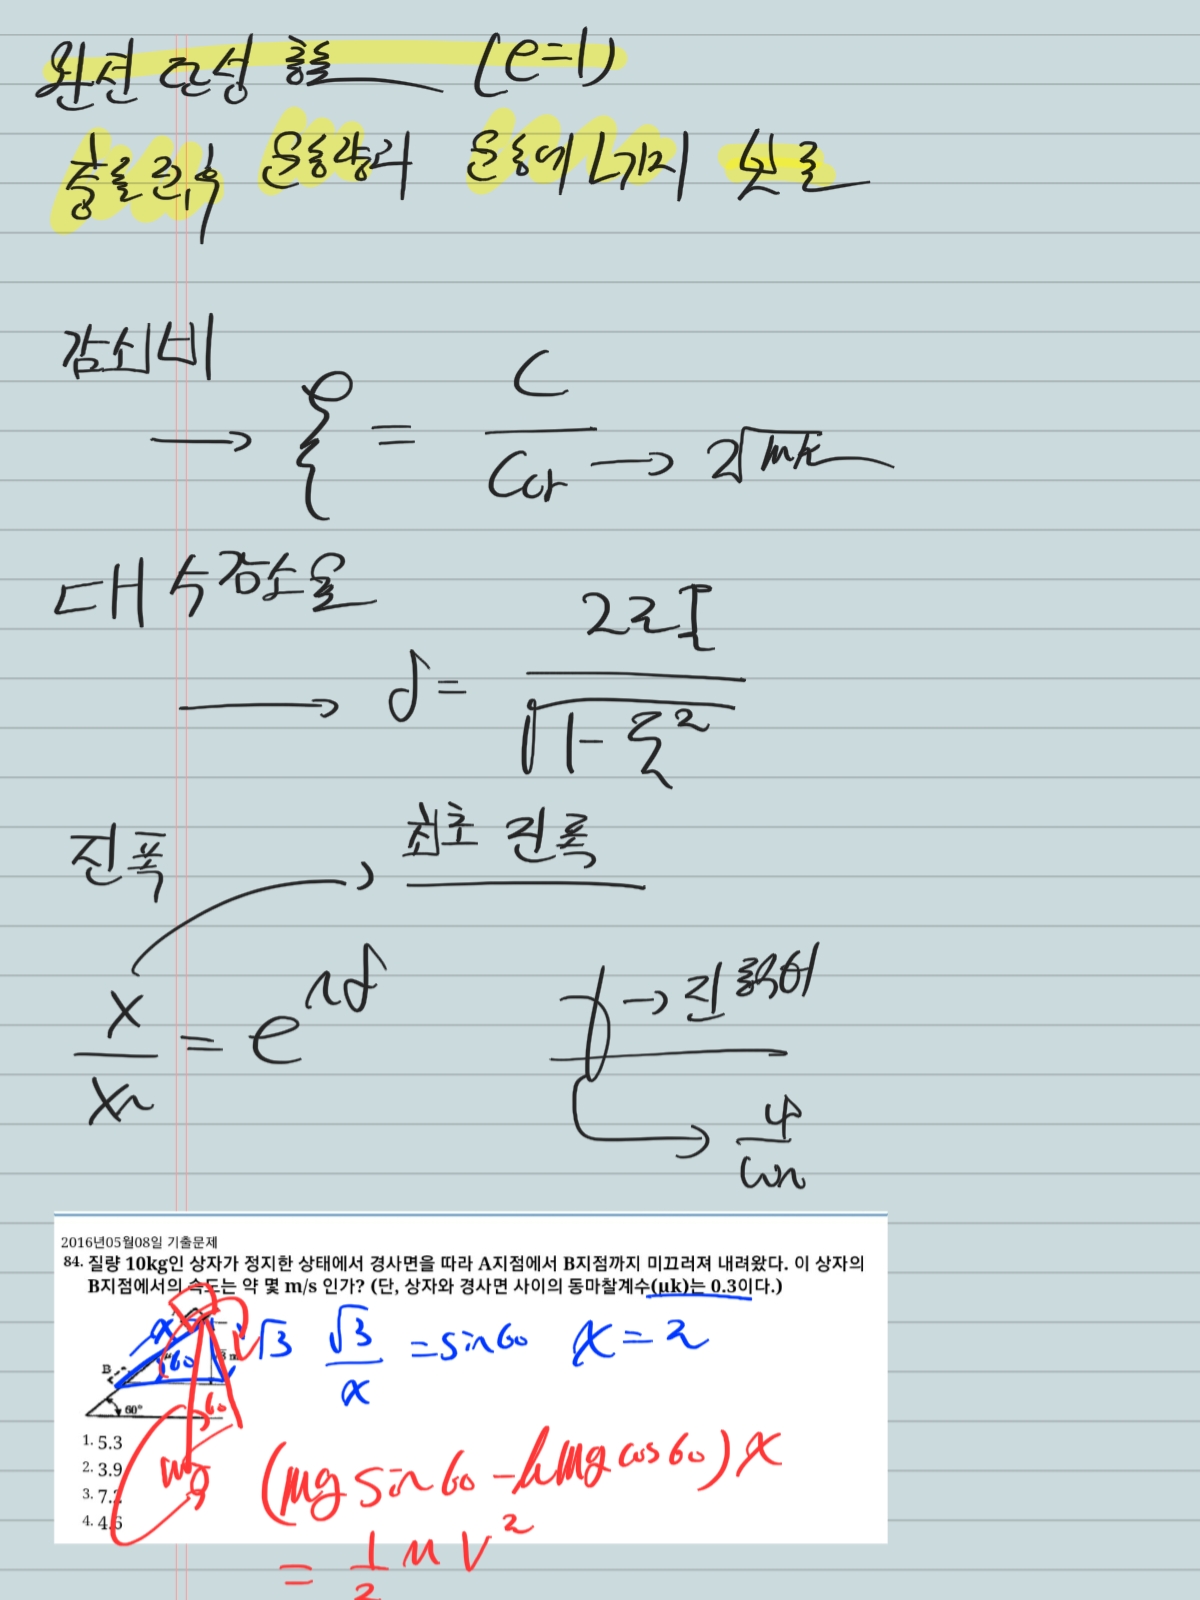 완전 탄성 충돌 (e=1)
충돌 전,후 운동량과 운동에너지 보존
감쇠비
→ ξ = C / Ccr → 2√mk
대수감소율
→ δ = 2πξ / √1-ξ²
진폭 최초 진폭
X / Xn = e^nδ
→ 진폭
4 / Wn
2016년05월08일 기출문제
84. 질량 10kg인 상자가 정지한 상태에서 경사면을 따라 A지점에서 B지점까지 미끄러져 내려왔다. 이 상자의
B지점에서의 속도는 약 몇 m/s 인가? (단, 상자와 경사면 사이의 동마찰계수(μk)는 0.3이다.)
x √3 √3 / x = sin60 x = 2
B 60
60° 60
1. 5.3
2. 3.9
3. 7.2
4. 4.6
mg (mg sin60 - μmg cos60) x
= 1/2 m V²